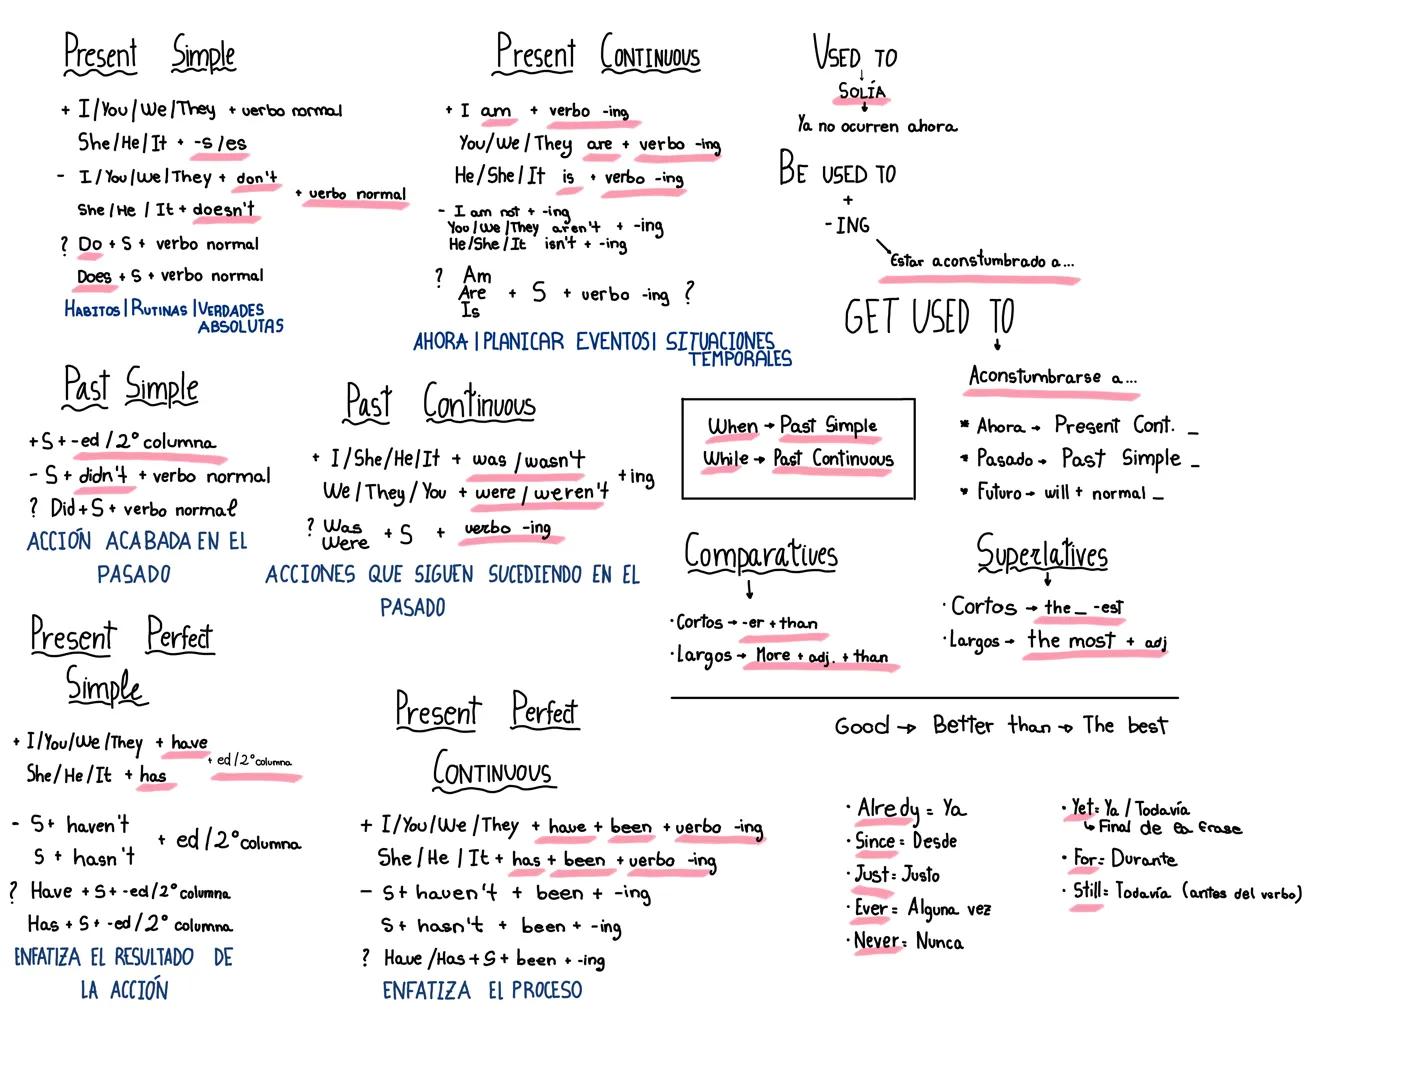 Present Simple
+ I/You/We/They + verbo normal
She/He/It + -s/es
- I/You/We/They + don't
She/He/It + doesn't
+ verbo normal
? Do + S + verbo normal
Does + S + verbo normal
HABITOS | RUTINAS | VERDADES
ABSOLUTAS
Present CONTINUOUS
+ I am + verbo -ing
You/We/They are + verbo -ing
He/She/It is + verbo -ing
- I am not + -ing
You/We/They aren't + -ing
He/She/It isn't + -ing
? Am
Are + S + verbo -ing ?
Is
AHORA | PLANICAR EVENTOS | SITUACIONES
TEMPORALES
USED TO
↓
SOLÍA
↓
Ya no ocurren ahora
BE USED TO
+
-ING
Estar aconstumbrado a...
GET USED TO
↓
Aconstumbrarse a...
* Ahora → Present Cont. _
* Pasado → Past Simple _
* Futuro → will + normal _
Past Simple
+ S + -ed / 2° columna
- S + didn't + verbo normal
? Did + S + verbo normal
ACCIÓN ACABADA EN EL
PASADO
Past Continuous
+ I/She/He/It + was / wasn't
We/They/You + were / weren't
+ ing
? Was
Were + S + verbo -ing
ACCIONES QUE SIGUEN SUCEDIENDO EN EL
PASADO
When → Past Simple
While → Past Continuous
Comparatives
↓
· Cortos → -er + than
· Largos → More + adj. + than
Superlatives
↓
· Cortos → the _ -est
· Largos → the most + adj
Good → Better than → The best
Present Perfect
Simple
+ I/You/We/They + have
She/He/It + has
+ ed / 2° columna
- S + haven't
S + hasn't
+ ed / 2° columna
? Have + S + -ed / 2° columna
Has + S + -ed / 2° columna
ENFATIZA EL RESULTADO DE
LA ACCIÓN
Present Perfect
CONTINUOUS
+ I/You/We/They + have + been + verbo -ing
She/He/It + has + been + verbo -ing
- S + haven't + been + -ing
S + hasn't + been + -ing
? Have/Has + S + been + -ing
ENFATIZA EL PROCESO
· Alredy = Ya
· Since = Desde
· Just = Justo
· Ever = Alguna vez
· Never = Nunca
· Yet = Ya / Todavía
↳ Final de la frase
· For = Durante
· Still = Todavía (antes del verbo)